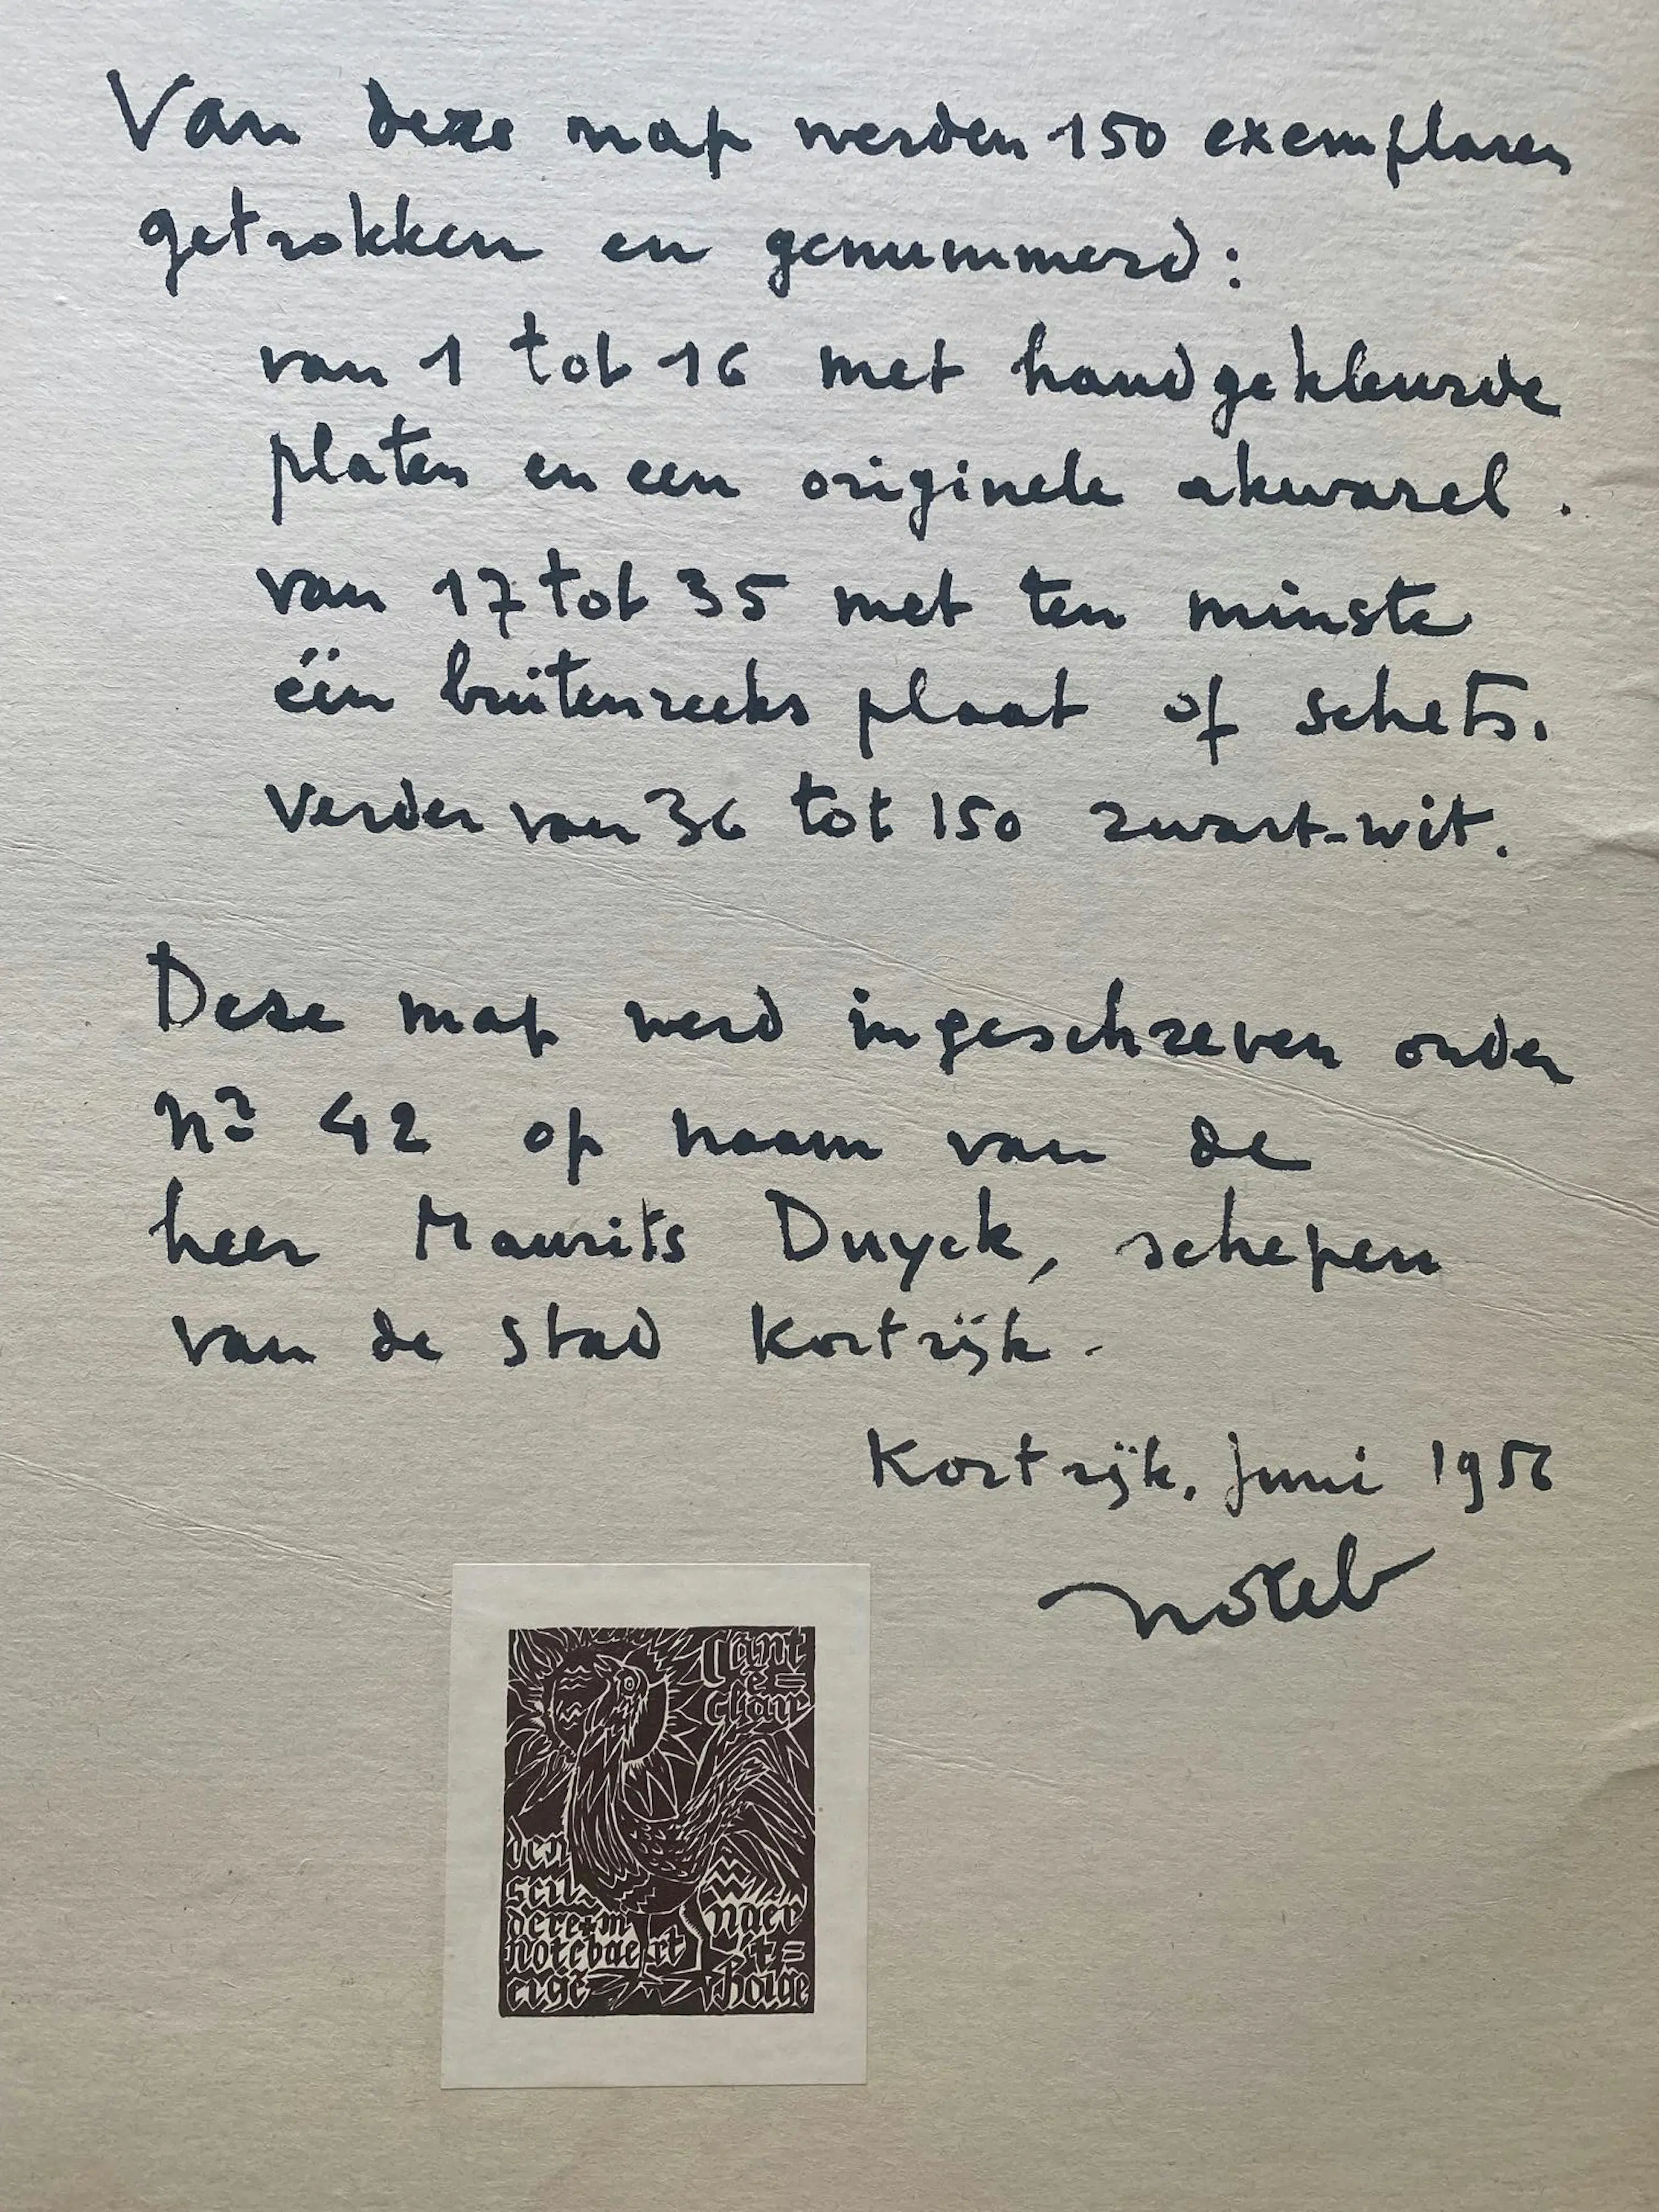 Van deze map werden 150 exemplaren
getrokken en genummerd:
van 1 tot 16 met handgekleurde
platen en een originele akwarel.
van 17 tot 35 met ten minste
één buitenreeks plaat of schets.
Verder van 36 tot 150 zwart-wit.
Deze map werd ingeschreven onder
nr 42 op naam van de
heer Maurits Duyck, schepen
van de stad Kortrijk.
Kortrijk, Juni 1956
noteb
Cant
e=
clair
den
scil=
dere
notebaert
eige
naer
t=